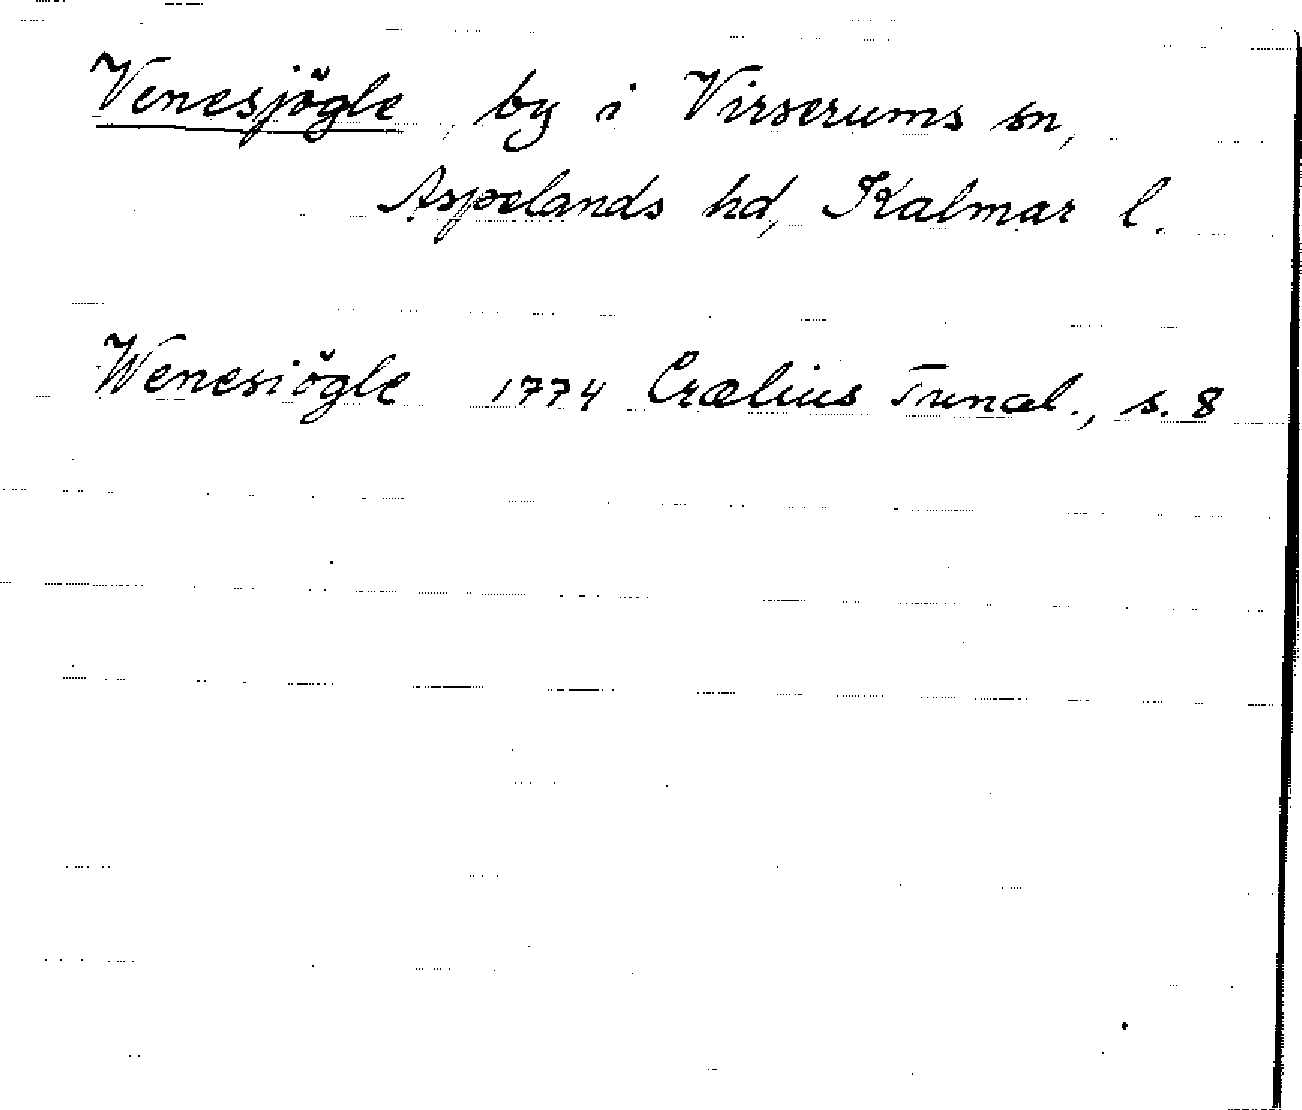 Venesjögle, by i Virserums sn,
Aspelands hd, Kalmar l.
Wenesiögle 1774 Crælius Tunal., s. 8